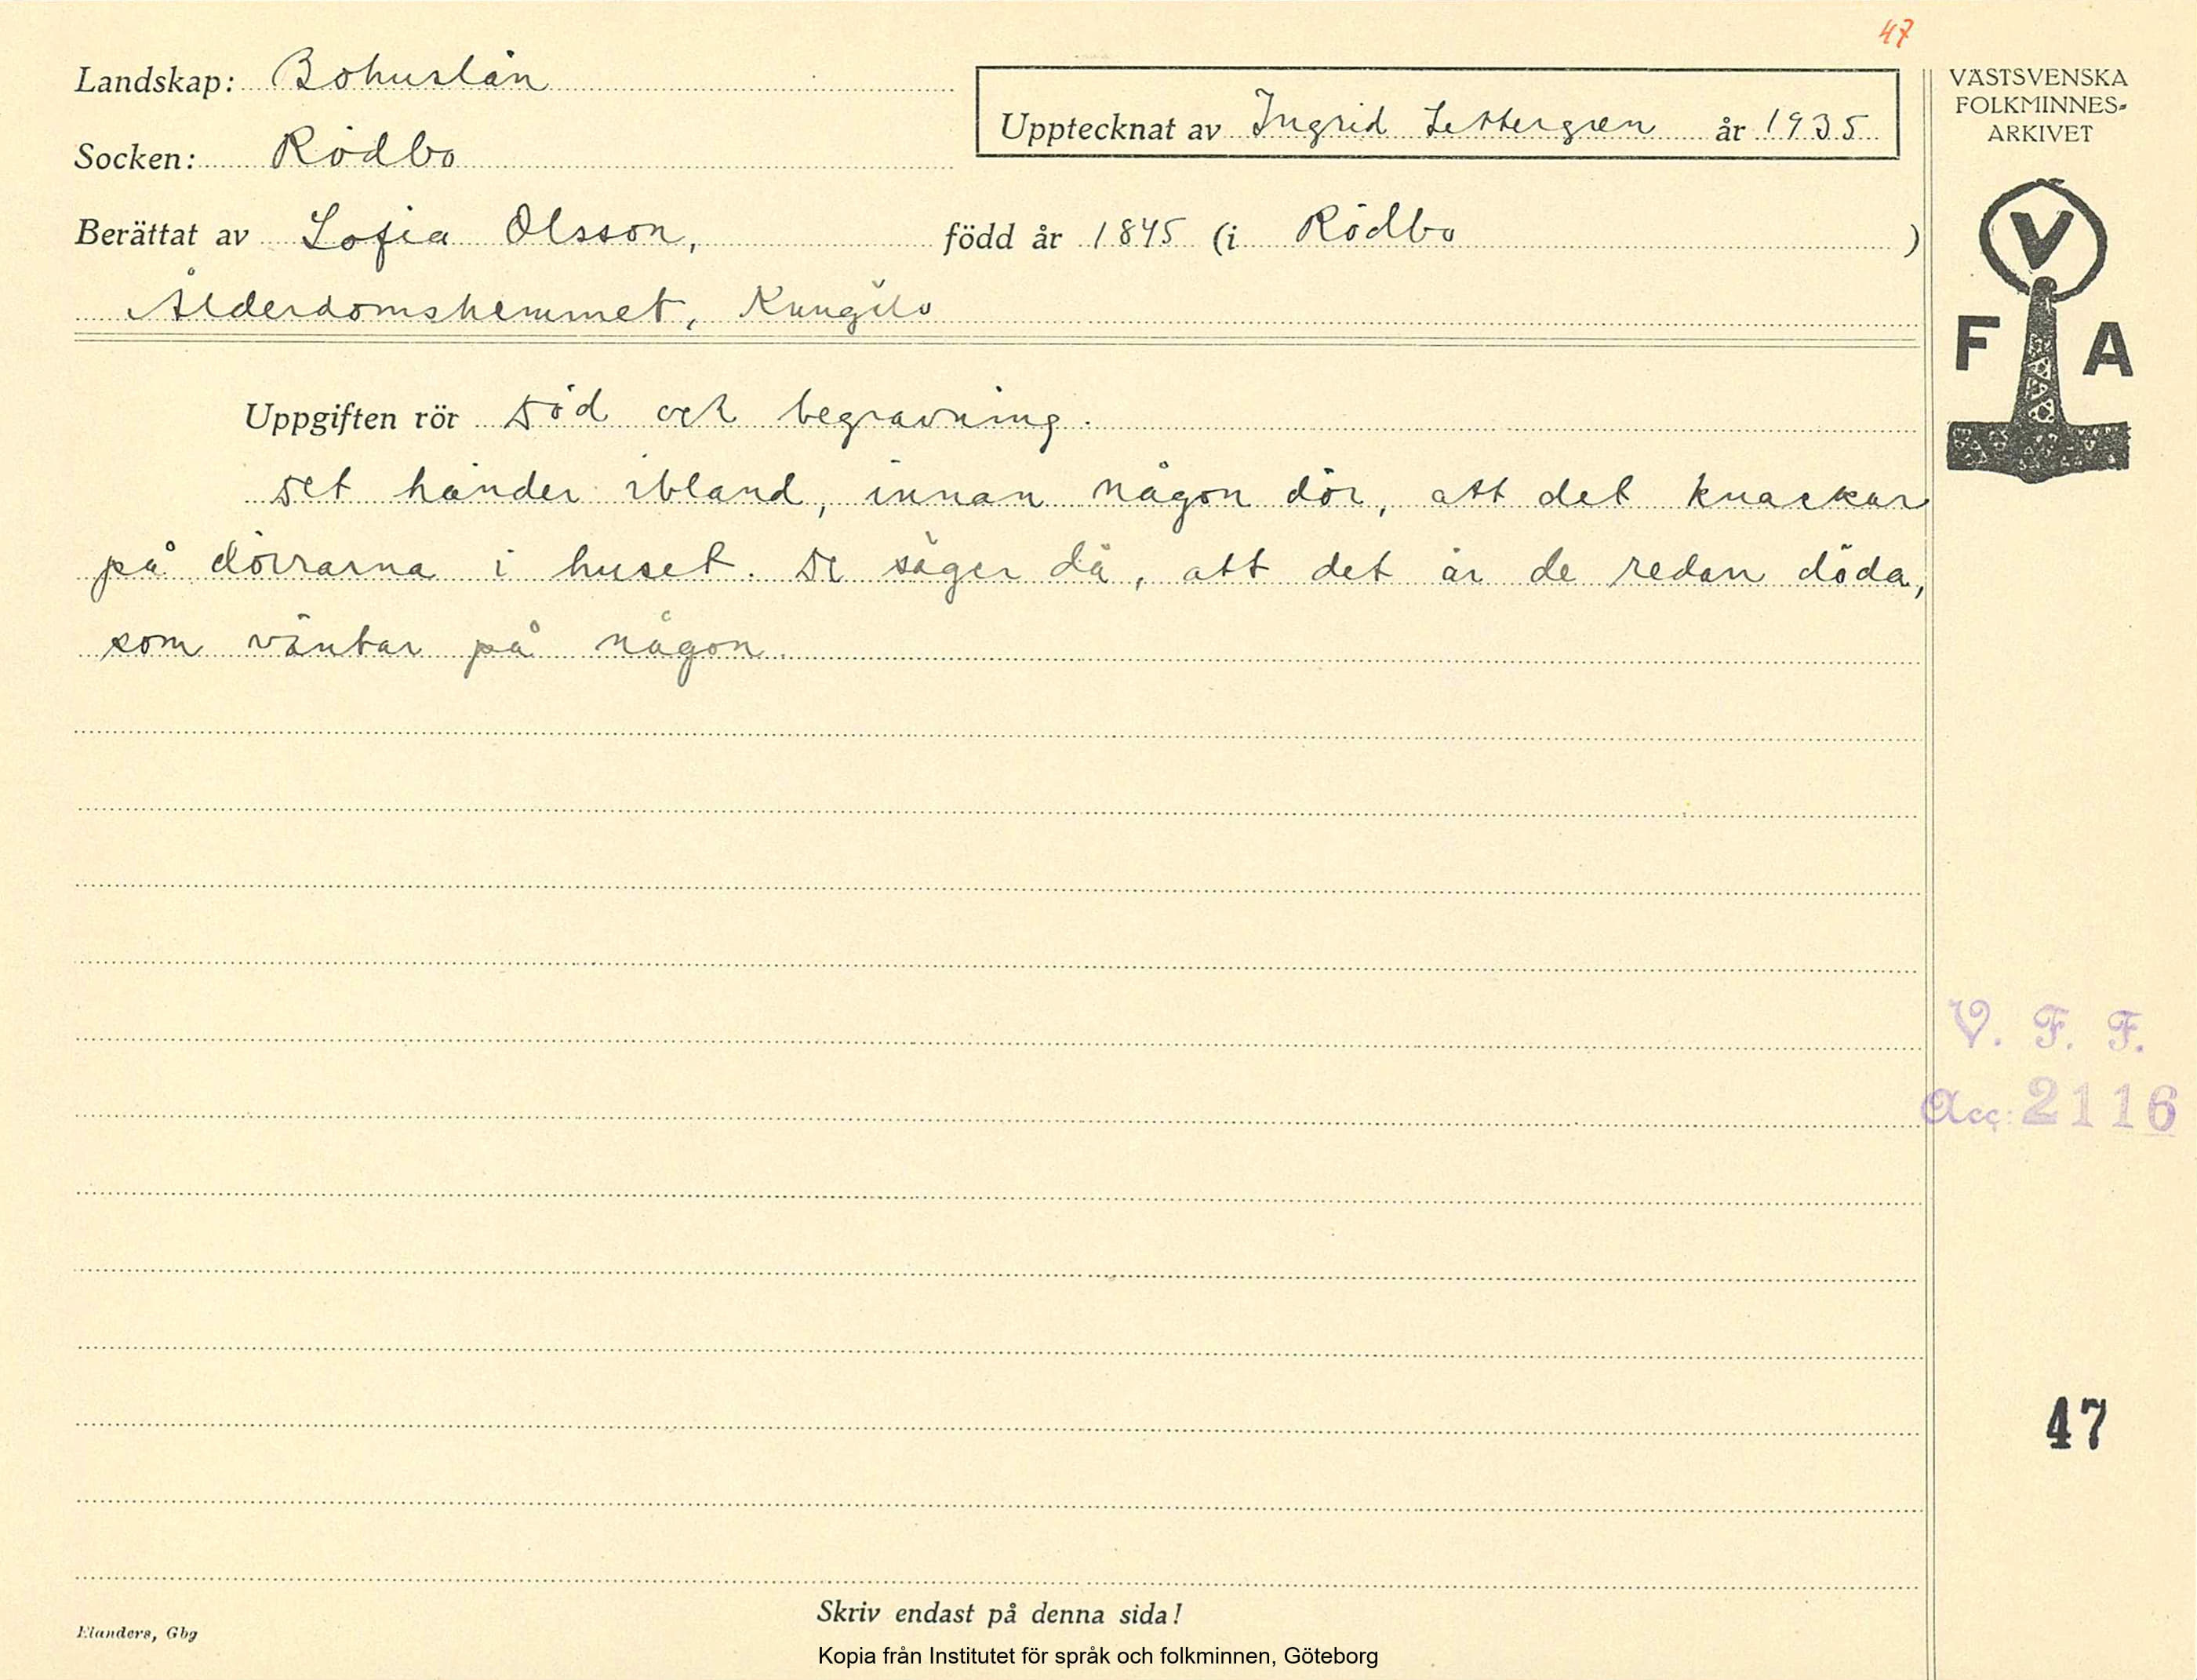 47
Landskap: Bohuslän
Socken: Rödbo
Upptecknat av Ingrid Settergren år 1935
Berättat av Sofia Olsson, född år 1845 (i Rödbo )
Ålderdomshemmet, Kungälv
VÄSTSVENSKA
FOLKMINNES-
ARKIVET
V
F A
Uppgiften rör Död och begravning.
Det händer ibland, innan någon dör, att det knackar
på dörrarna i huset. De säger då, att det är de redan döda,
som väntar på någon.
V. F. F.
Acc: 2116
47
Skriv endast på denna sida!
Elanders, Gbg
Kopia från Institutet för språk och folkminnen, Göteborg